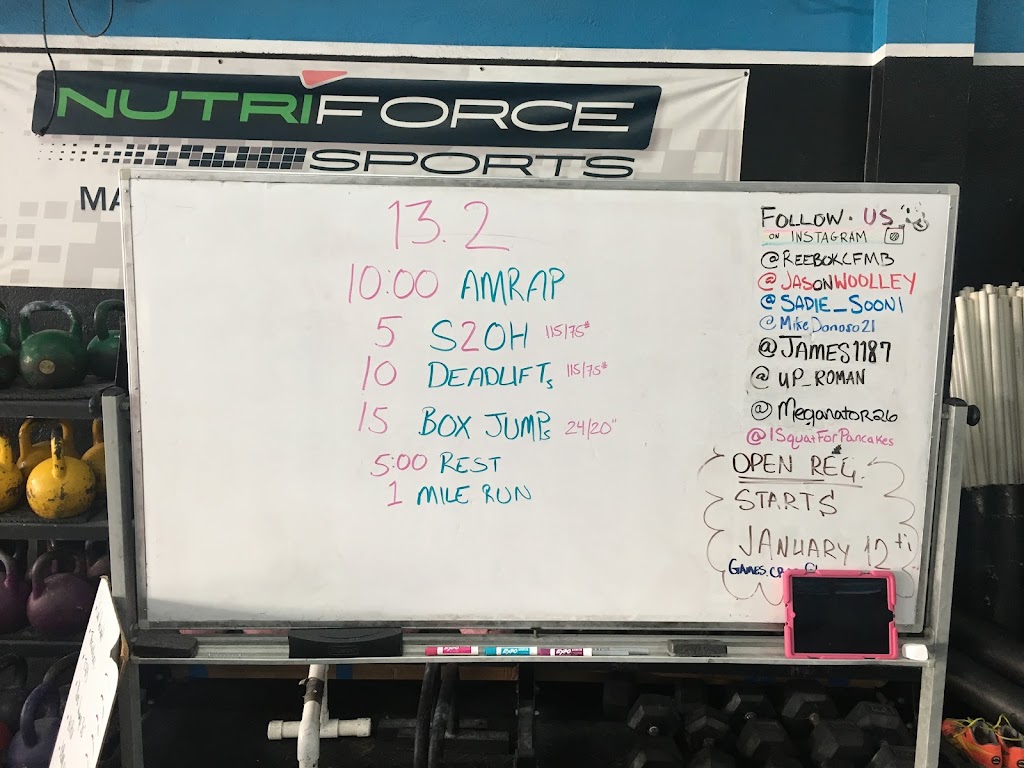 NUTRIFORCE
SPORTS
MA
13.2
10:00 AMRAP
5 S2OH 115/75#
10 DEADLIFTs 115/75#
15 BOX JUMPs 24/20"
5:00 REST
1 MILE RUN
FOLLOW. US
ON INSTAGRAM
@REEBOKCFMB
@JASONWOOLLEY
@SADIE_SOON1
@MikeDonoso21
@JAMES1187
@UP_ROMAN
@Meganator26
@1SquatForPancakes
OPEN REG.
STARTS
JANUARY 12th
GAMES.
EXPO
EXPO
EXPO